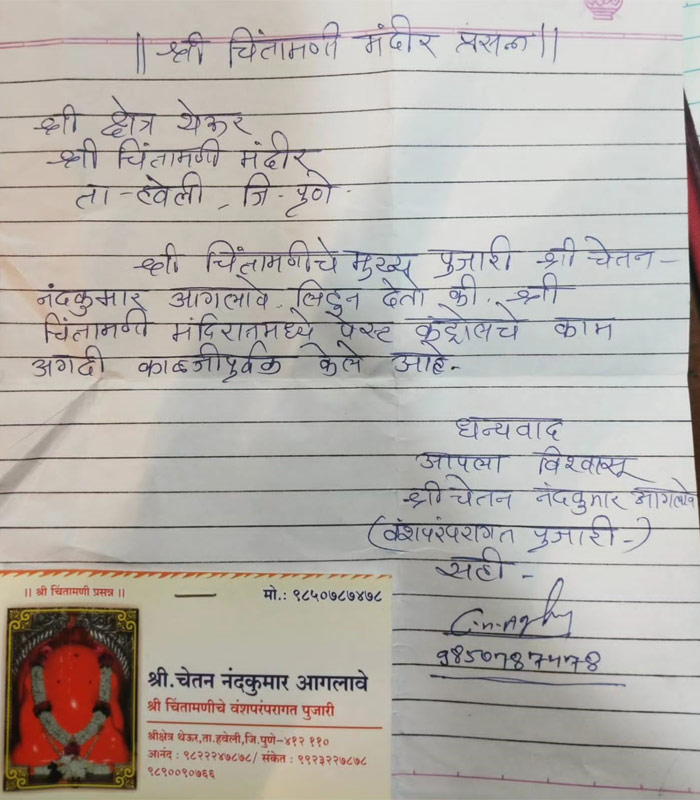 || श्री चिंतामणी मंदीर प्रसन्न ||
श्री क्षेत्र थेऊर
श्री चिंतामणी मंदीर
ता - हवेली, जि - पुणे.
श्री चिंतामणीचे मुख्य पुजारी श्री चेतन -
नंदकुमार आगलावे. लिहुन देतो की. श्री
चिंतामणी मंदिरातमध्ये पेस्ट कंट्रोलचे काम
अगदी काळजीपुर्वक केले आहे.
धन्यवाद
आपला विश्वासू
श्री चेतन नंदकुमार आगलावे
(वंशपरंपरागत पुजारी -)
सही -
9850787478
|| श्री चिंतामणी प्रसन्न ||
मो.: ९८५०७८७४७८
श्री. चेतन नंदकुमार आगलावे
श्री चिंतामणीचे वंशपरंपरागत पुजारी
श्रीक्षेत्र थेऊर,ता.हवेली,जि.पुणे-४१२ ११०
आनंद : ९८२२२४७८७८/ संकेत : ९९२३२२७८७८
९८९००९०७६६